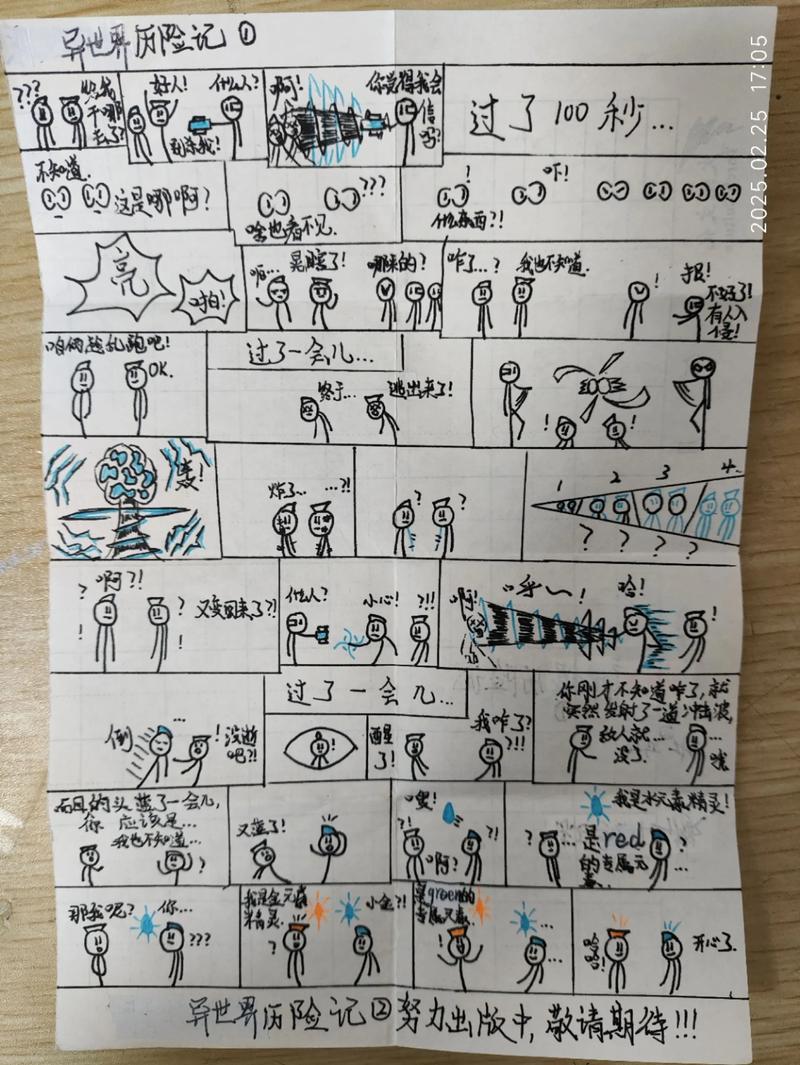 异世界历险记①
???
好人!
别杀我!
什么人?
啊!
你觉得我会
信吗?
过了100秒...
不知道.
这是哪啊?
???
啥也看不见.
!
什么东西?!
吓!
亮
啪!
呃...
晃瞎了!
哪来的?
咋了...?
我也不知道.
!
报!
不好了!
有人入
侵!
咱俩趁乱跑吧!
OK.
过了一会儿...
终于...
逃出来了!
!
!
轰!
炸了...
...?!
?
?
1
2
3
4
? ? ? ?
?
啊?!
!
?
!
又变回来了?!
什么人?
小心!
?!!
啊!
呼~!
哈!
倒
...
!
没逝
吧?!
过了一会儿...
!
醒
了!
我咋了?
?!!
你刚才不知道咋了,就
突然发射了一道冲击波,
敌人就...
没了.
...
而且你的头蓝了一会儿,
你应该是...
我也不知道...
?
又蓝了!
!
嘿!
?!
啊?
?!
我是水元素精灵!
?
是red
的专属元
素..
?
那我呢?
你...
???
我是金元素
精灵.
?
小金?!
是green的
专属元素..
!
...
哈
哈!
开心了.
异世界历险记②努力出版中,敬请期待!!!